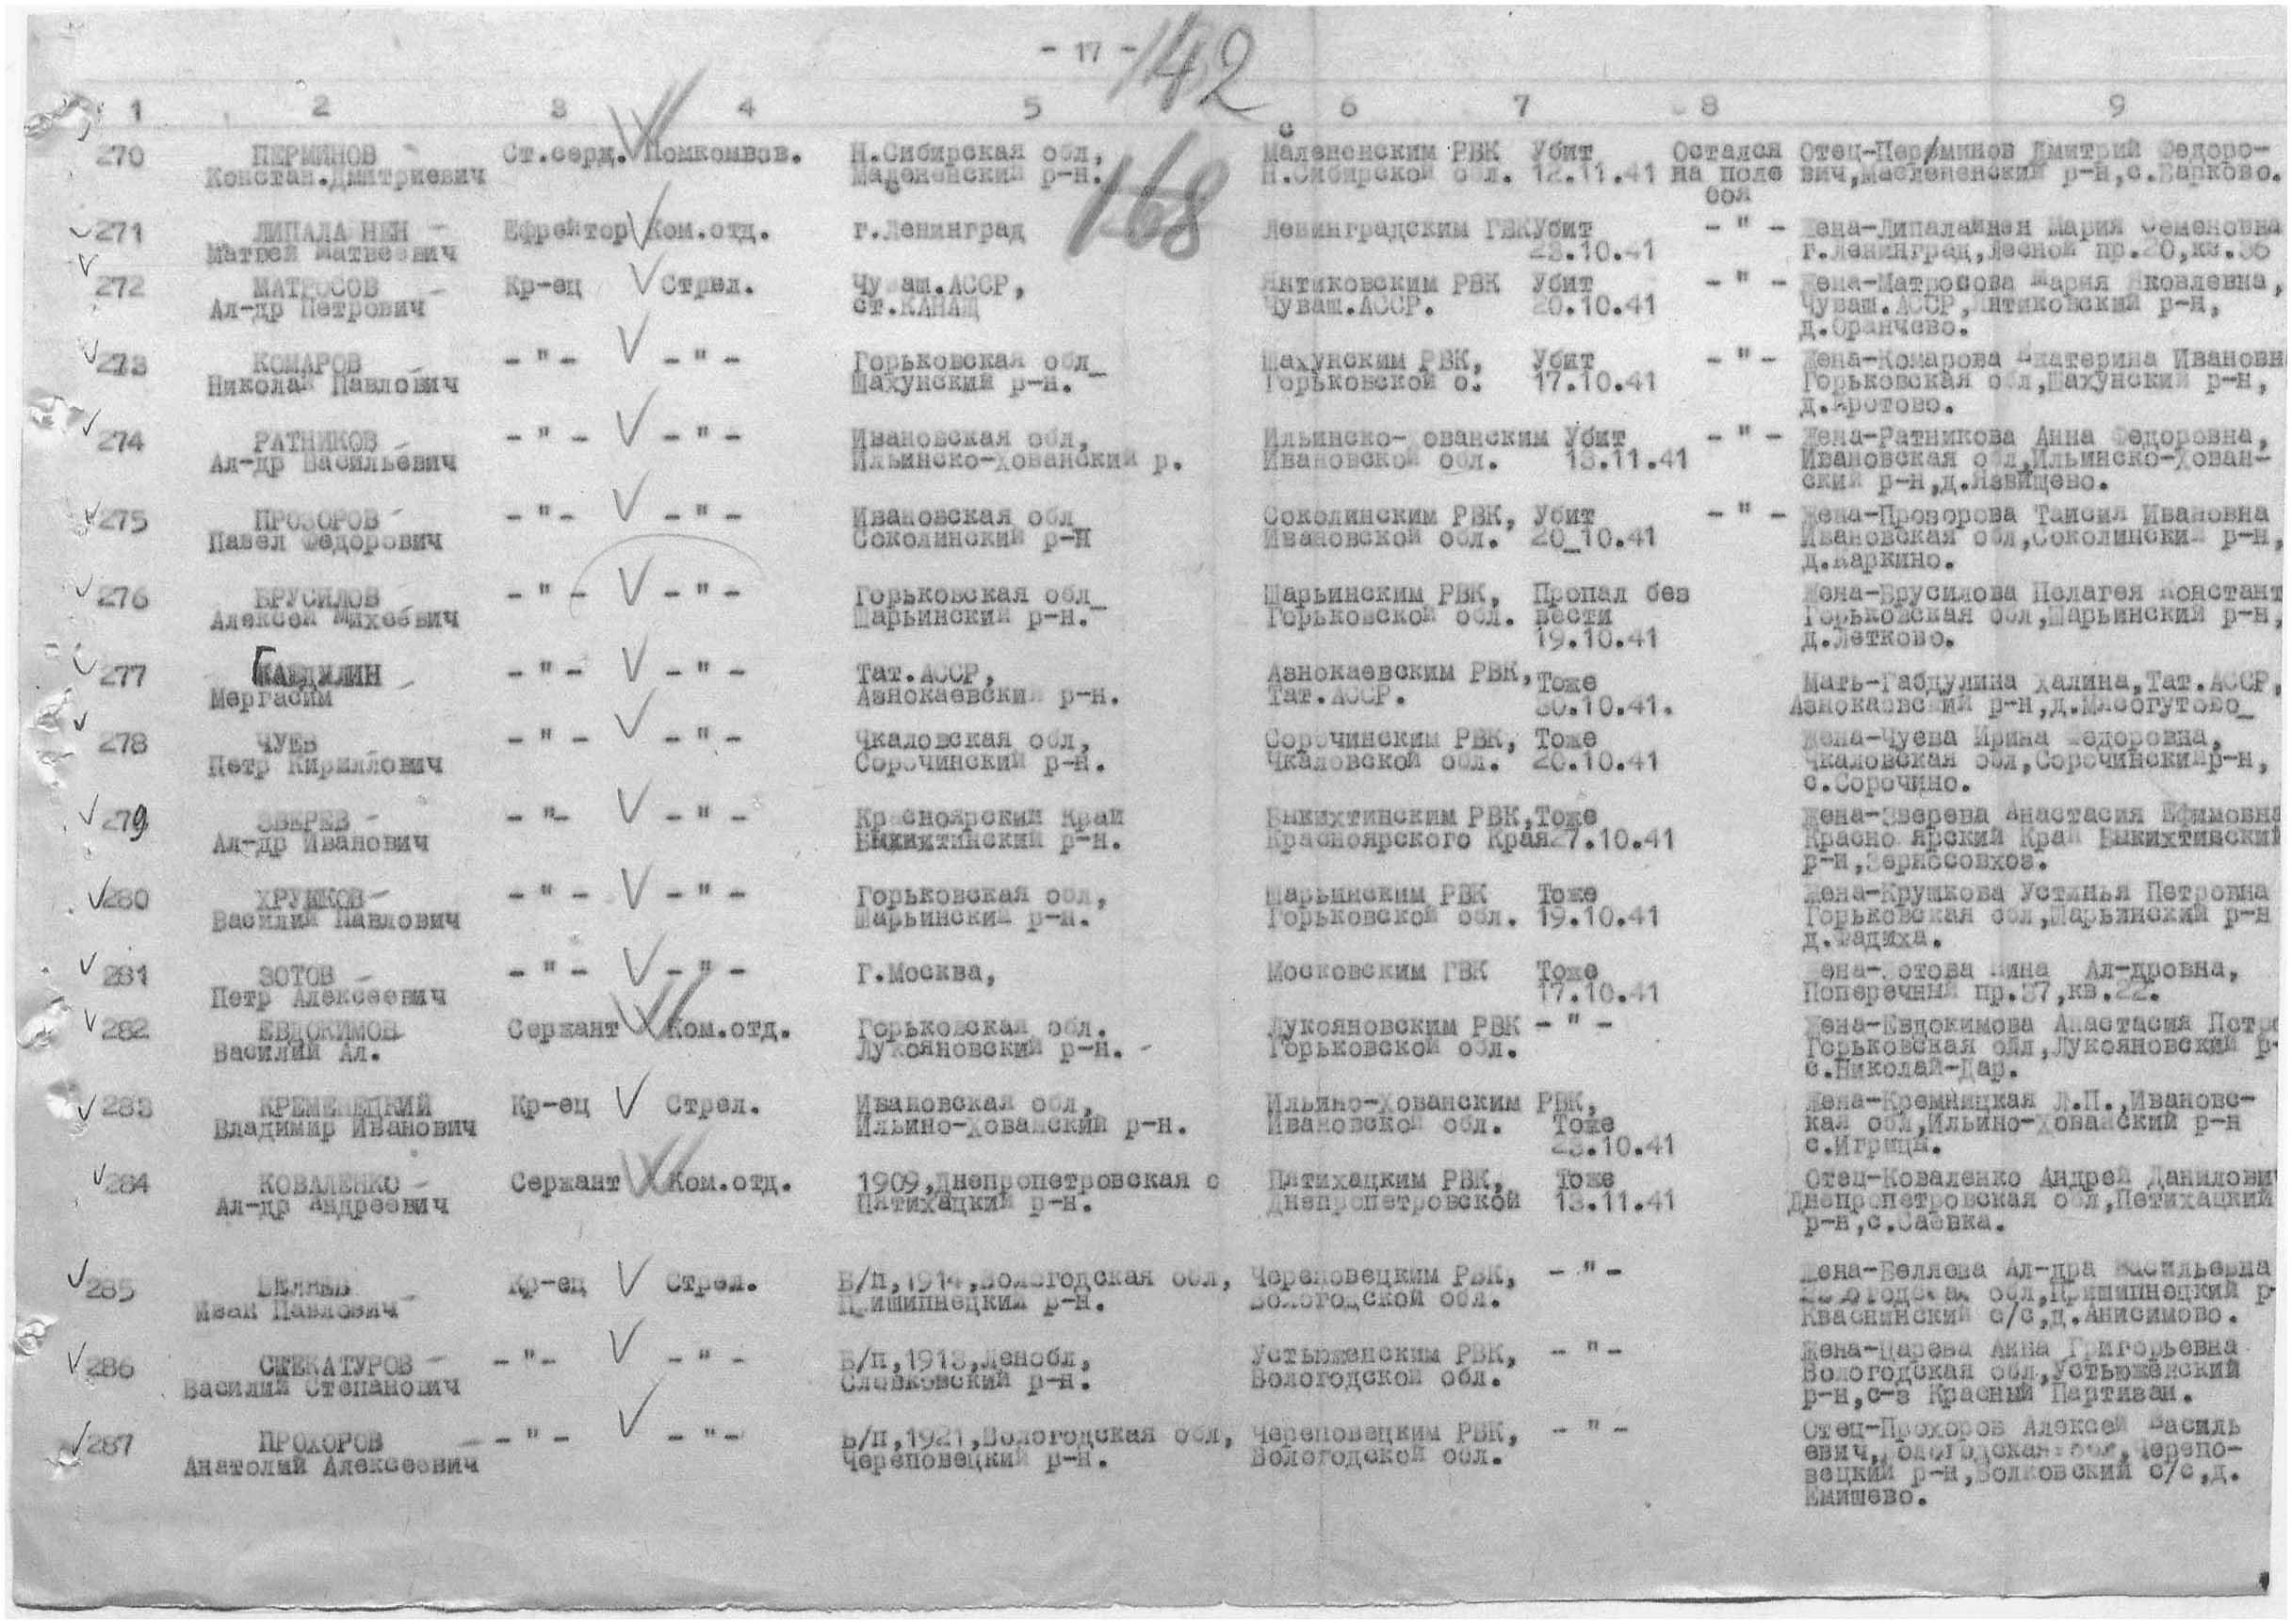 - 17 - 142
1 2 3 4 5 6 7 8 9
168
270 ПЕРМИНОВ - Ст.серж. Помкомвзв. Н.Сибирская обл, Убит Остался Отец-Перминов Дмитрий Федоро-
Констан.Дмитриевич р-н. Н.Сибирской обл. 12.11.41 на поле вич, р-н,с.Барково.
боя
271 ЛИПАЛА НЕН - Ефрейтор Ком.отд. г.Ленинград Ленинградским ГВК Убит - " - Жена-Липалайнен Мария Семеновна
Матвей Матвеевич 23.10.41 г.Ленинград,Лесной пр.20,кв.36
272 МАТРОСОВ - Кр-ец Стрел. Чуваш.АССР, Янтиковским РВК Убит - " - Жена-Матросова Мария Яковлевна,
Ал-др Петрович ст.КАНАШ Чуваш.АССР. 20.10.41 Чуваш.АССР,Янтиковский р-н,
д.Оранчево.
273 КОМАРОВ - " - - " - Горьковская обл_ Шахунским РВК, Убит - " - Жена-Комарова Екатерина Ивановн
Николай Павлович Шахунский р-н. Горьковской о. 17.10.41 Горьковская обл,Шахунский р-н,
д.Кротово.
274 РАТНИКОВ - - " - - " - Ивановская обл, Ильинско-Хованским Убит - " - Жена-Ратникова Анна Федоровна,
Ал-др Васильевич Ильинско-Хованский р. Ивановской обл. 13.11.41 Ивановская обл,Ильинско-Хован-
ский р-н,д.Явищево.
275 ПРОЗОРОВ - - " - - " - Ивановская обл_ Соколинским РВК, Убит - " - Жена-Прозорова Таисия Ивановна
Павел Федорович Соколинский р-н Ивановской обл. 20_10.41 Ивановская обл,Соколинский р-н,
д.Каркино.
276 БРУСИЛОВ - " - - " - Горьковская обл_ Шарьинским РВК, Пропал без Жена-Брусилова Пелагея Констант
Алексей Михеевич Шарьинский р-н. Горьковской обл. вести Горьковская обл,Шарьинский р-н,
19.10.41 д.Летково.
277 - " - - " - Тат.АССР, Азнокаевским РВК, Тоже Мать-Габдулина Халина,Тат.АССР,
Мергасим Азнокаевский р-н. Тат.АССР. 30.10.41. Азнокаевский р-н,д.Мясогутово_
278 ЧУЕВ - " - - " - Чкаловская обл, Сорочинским РВК, Тоже Жена-Чуева Ирина Федоровна,
Петр Кириллович Сорочинский р-н. Чкаловской обл. 20.10.41 Чкаловская обл,Сорочинский р-н,
с.Сорочино.
279 ЗВЕРЕВ - - "- - " - Красноярский Край Выкихтинским РВК,Тоже Жена-Зверева Анастасия Ефимовна
Ал-др Иванович р-н. Красноярского Края27.10.41 Красно ярский Край Выкихтинский
р-н,Зерносовхоз.
280 ХРУШКОВ- - " - - " - Горьковская обл, Шарьинским РВК Тоже Жена-Крушкова Устинья Петровна
Василий Павлович Шарьинский р-н. Горьковской обл. 19.10.41 Горьковская обл,Шарьинский р-н
д.Фадиха.
281 ЗОТОВ - - " - - " - Г.Москва, Московским ГВК Тоже Жена-Зотова Ал-дровна,
Петр Алексеевич 17.10.41 Поперечный пр.37,кв.22.
282 ЕВДОКИМОВ Сержант Ком.отд. Горьковская обл. Лукояновским РВК - " - Жена-Евдокимова Анастасия Петро
Василий Ал. Лукояновский р-н. - Горьковской обл. Горьковская обл,Лукояновский р-
с.Николай-Дар.
283 КРЕМЕНЕЦКИЙ Кр-ец Стрел. Ивановская обл, Ильино-Хованским РВК, Жена-Кремницкая Л.П.,Ивановс-
Владимир Иванович Ильино-Хованский р-н. Ивановской обл. Тоже кая обл,Ильино-Хованский р-н
23.10.41 с.Игрищи.
284 КОВАЛЕНКО - Сержант Ком.отд. 1909,Днепропетровская о Пятихацким РВК, Тоже Отец-Коваленко Андрей Данилович
Ал-др Андреевич Пятихацкий р-н. Днепропетровской 13.11.41 Днепропетровская обл,Петихацкий
р-н,с.Саевка.
285 БЕЛЯЕВ Кр-ец Стрел. Б/п,1914,Вологодская обл, Череповецким РВК, - " - Жена-Беляева Ал-дра Васильевна
Иван Павлович Пришипнецкий р-н. Вологодской обл. Вологодская обл,Пришипнецкий р-
Кваснинский с/с,д.Анисимово.
286 СШЕКАТУРОВ - - " - - " - Б/п,1913,Ленобл, Устюженским РВК, - " - Жена-Царева Анна Григорьевна
Василий Степанович Славковский р-н. Вологодской обл. Вологодская обл,Устюженский
р-н,с-з Красный Партизан.
287 ПРОХОРОВ - " - - " - Б/п,1921,Вологодская обл, Череповецким РВК, - " - Отец-Прохоров Алексей Василь
Анатолий Алексеевич Череповецкий р-н. Вологодской обл. евич,Вологодская обл,Черепо-
вецкий р-н,Волковский с/с,д.
Емишево.